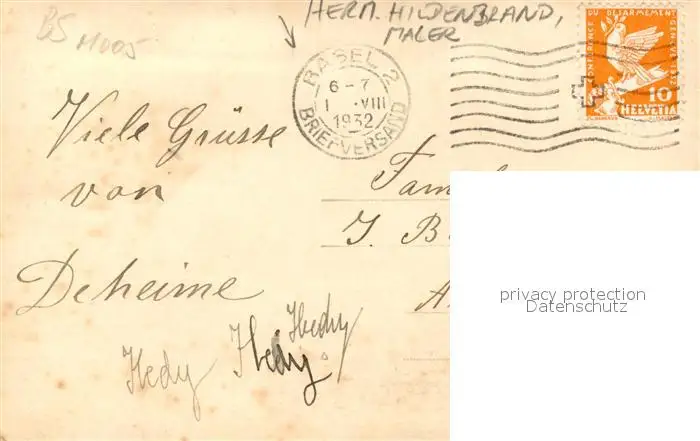 BS
HERM. HILDENBRAND,
MALER
BASEL 2
6-7
I VIII
1932
BRIEFVERSAND
CONFERENCE DU DESARMEMENT GENEVE 1932
10
HELVETIA
Viele Grüsse
von
Deheime
Hedy Hedy Hedy
Fam
J. B
A
privacy protection
Datenschutz